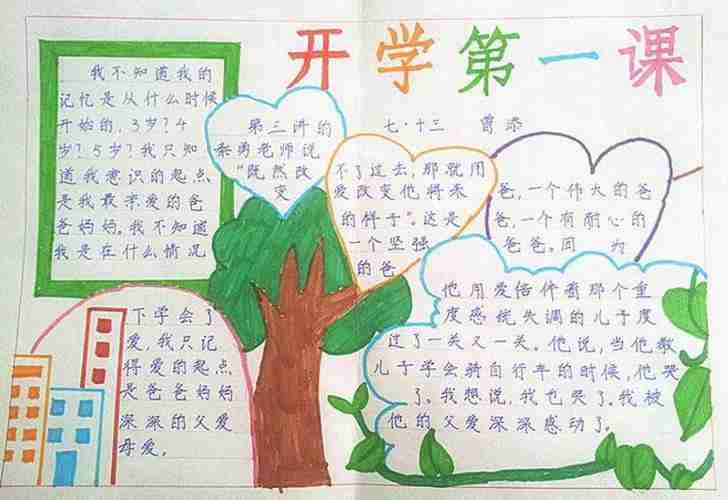 开学第一课
我不知道我的
记忆是从什么时候
开始的,3岁?4
岁?5岁?我只知
道我意识的起点
是我最亲爱的爸
爸妈妈。我不知道
我是在什么情况
下学会了
爱,我只记
得爱的起点
是爸爸妈妈
深深的父爱
母爱。
七·十三 曾添
第三讲的
乘勇老师说
“既然改
变
不了过去,那就用
爱改变他将来
的样子”。这是
一个坚强
的爸
爸,一个伟大的爸
爸,一个有耐心的
爸爸。因 为
他用爱陪伴着那个重
度感统失调的儿子度
过了一关又一关。他说,当他教
儿子学会骑自行车的时候,他哭
了。我想说,我也哭了。我被
他的父爱深深感动了。